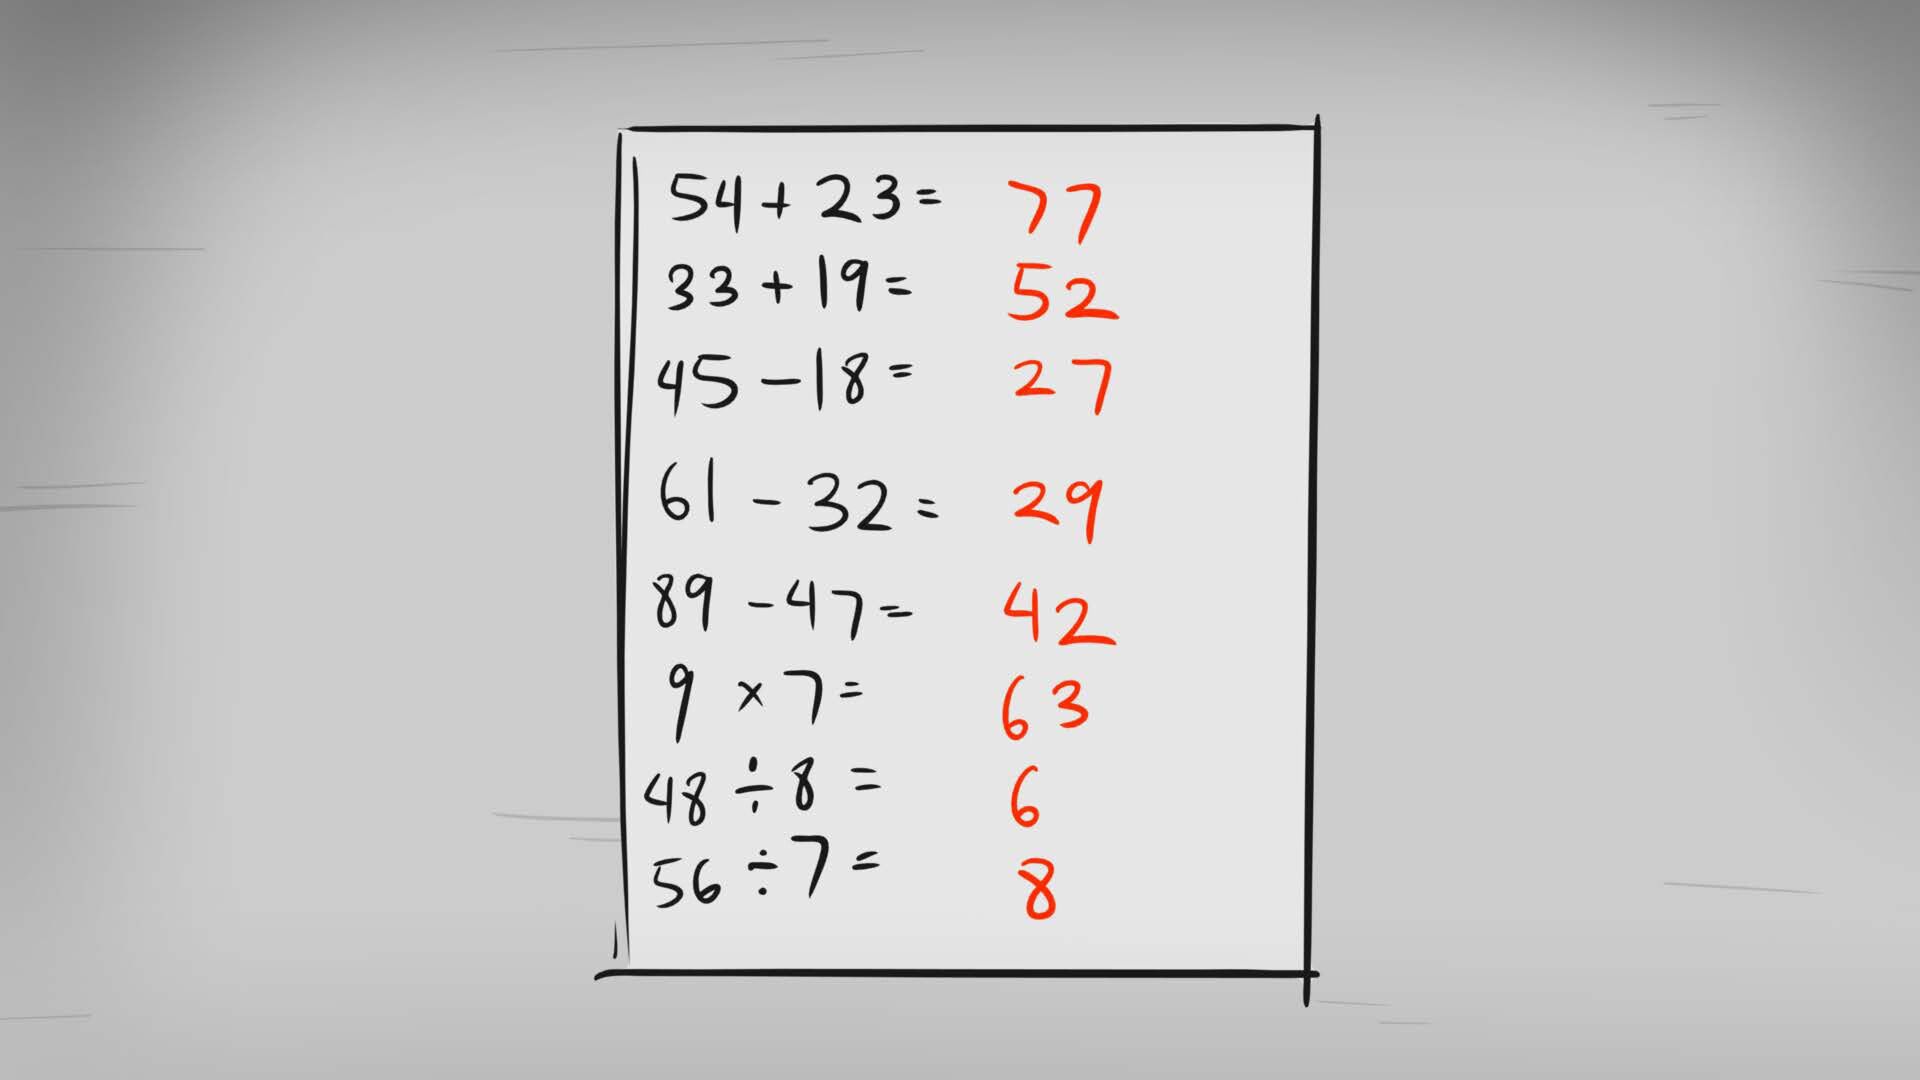 54 + 23 = 77
33 + 19 = 52
45 - 18 = 27
61 - 32 = 29
89 - 47 = 42
9 × 7 = 63
48 ÷ 8 = 6
56 ÷ 7 = 8